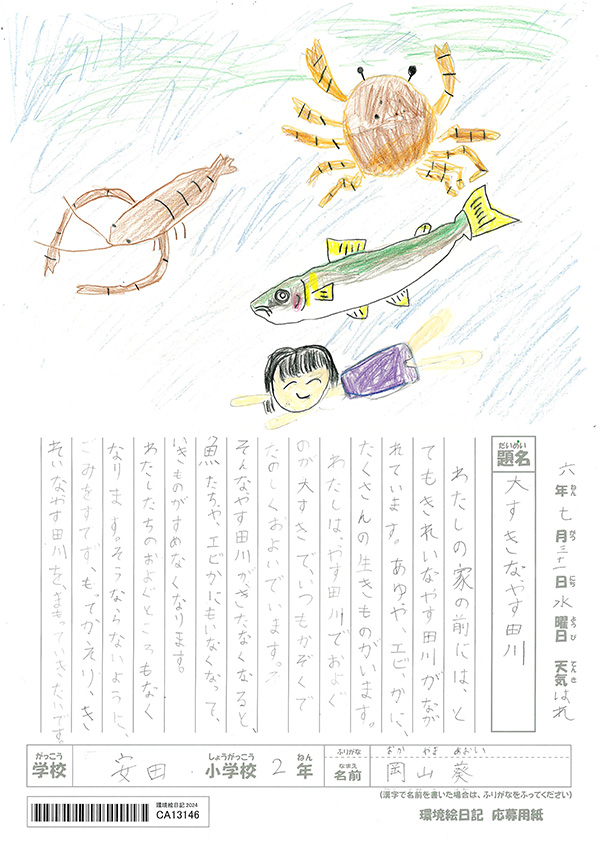 六年七月三十一日水曜日 天気はれ
ねん がつ にち ようび てんき
だいめい
題名
大すきなやす田川
わたしの家の前には、と
てもきれいなやす田川がなが
れています。あゆや、エビ、かに、
たくさんの生きものがいます。
わたしは、やす田川でおよぐ
のが大すきで、いつもかぞくで
たのしくおよいでいます。
そんなやす田川が、きたなくなると、
魚たちや、エビかにもいなくなって、
いきものがすめなくなります。
わたしたちのおよぐところもなく
なります。そうならないように、
ごみをすてず、もってかえり、き
れいなやす田川を、まもっていきたいです。
がっこう しょうがっこう ねん
学校 安田 小学校 2年
ふりがな おか やま あおい
なまえ
名前 岡山 葵
(漢字で名前を書いた場合は、ふりがなをふってください)
環境絵日記 2024
CA13146
環境絵日記 応募用紙